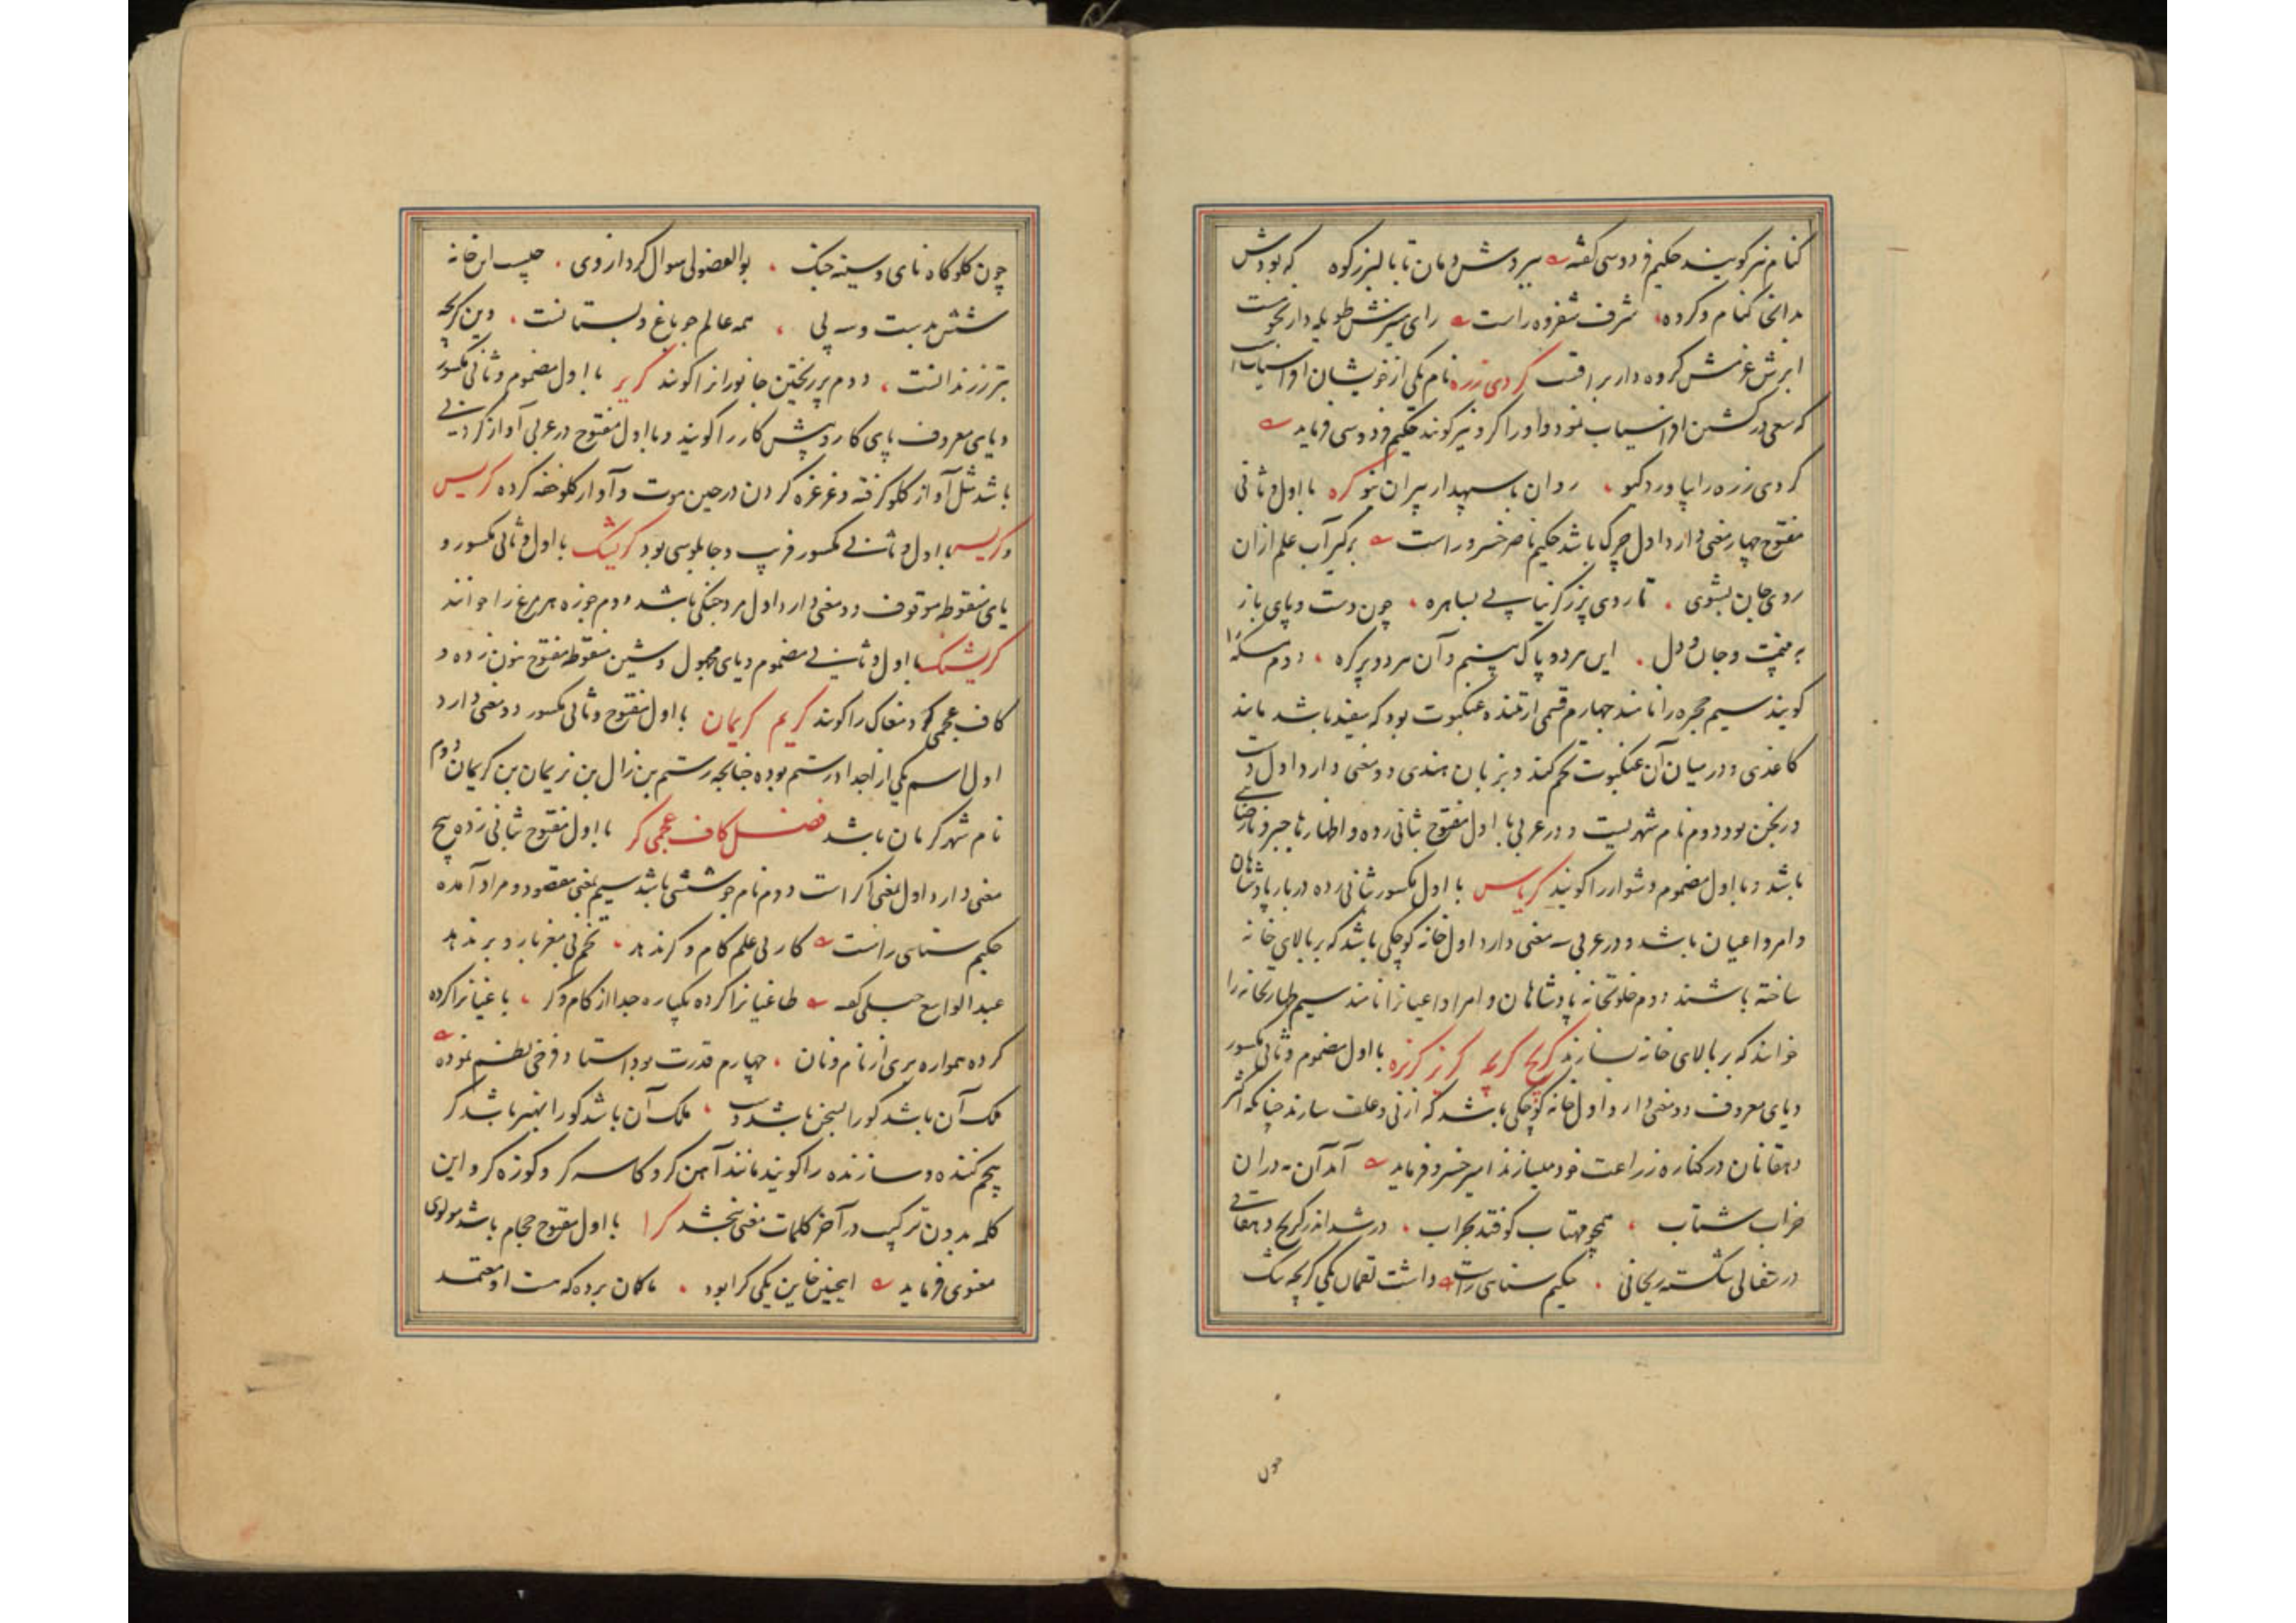 کنام نیز گویند حکیم فردوسی گفته ببردش دمان تا بالبرز کوه که بودش
بدانجا کنام و گروه شرف شفروه راست رای میرش طویله دار نحوست
ابرش عزمش گروه دار براقست گردی زره نام یکی از خویشان افراسیاب است
که سعی در کشتن افراسیاب نمود و او را گرو نیز گویند حکیم فردوسی فرماید
گردی زره را بیاورد گیو دوان با سپهدار پیران نیو کره با اول و ثانی
مفتوح چهار معنی دارد اول چرک باشد حکیم ناصر خسرو راست برگیر آب علم از آن
روی جان بشوی تا روی پرز کرنیاپی بساهره چون دست و پای باز
به و جان و دل این هر دو پاک بینم و آن هر دو پرکره دوم مسکه را
گویند سیم حجره را نامند چهارم قسمی از تننده عنکبوت بود که سفید باشد مانند
کاغذی و در میان آن عنکبوت تخم کند و بزبان هندی دو معنی دارد اول دست
درنجن بود دوم نام شهریست و در عربی با اول مفتوح بثانی زده و اظهار ها جبر و نارضایی
باشد و با اول مضموم دشوار را گویند کریاس با اول مکسور بثانی زده دربار پادشاهان
و امرا و اعیان باشد و در عربی سه معنی دارد اول خانه کوچکی باشد که بر بالای خانه
ساخته باشند دوم خلوتخانه پادشاهان و امرا و اعیانرا نامند سیم طهارتخانه را
خوانند که بر بالای خانه بسازند کریج کریچه کریز کریزه با اول مضموم و ثانی مکسور
و یای معروف دو معنی دارد اول خانه کوچکی باشد که از نی و علف سازند چنانکه اکثر
دهقانان در کناره زراعت خود میسازند امیر خسرو فرماید آمد آن مه در آن
خراب شتاب همچو مهتاب کوفتد بخراب در شد اندر کریج دهقانی
در سفالی شکسته ریحانی حکیم سنایی راست داشت لقمان یکی کریچه تنگ
چون
چون گلوگاه نای و سینه چنگ بوالفضولی سوال کرد از وی چیست این خانه
شش بدست و سه پی همه عالم چو باغ و بستانست وین کریچه
بتر ز زندانست دوم پر ریختن جانورانرا گویند کریر با اول مضموم و ثانی مکسور
و یای معروف پای کار و پیش کار را گویند و با اول مفتوح در عربی آواز گردنی
باشد مثل آواز گلو گرفته و غرغره کردن در حین موت و آواز گلو خفه کرده کریس
و کریس با اول و ثانی مکسور فریب و چاپلوسی بود کریشک با اول و ثانی مکسور و
یای منقوطه موقوف دو معنی دارد اول مرد جنگی باشد دوم جوزه هر مرغ را خوانند
کریشنگ با اول و ثانی مضموم و یای مجهول و شین منقوطه مفتوح بنون زده و
کاف عجمی گو و مغاک را گویند کریم کریمان با اول مفتوح و ثانی مکسور دو معنی دارد
اول اسم یکی از اجداد رستم بوده چنانچه رستم بن زال بن نریمان بن کریمان دوم
نام شهر کرمان باشد فصل کاف عجمی گر با اول مفتوح بثانی زده پنج
معنی دارد اول بمعنی اگر است دوم نام جوششی باشد سیم بمعنی مقصود و مراد آمده
حکیم سنایی راست کار بی علم کام و گر ندهد تخم بی مغز بار و بر ندهد
عبدالواسع جبلی گفته طاغیانرا کرده یکباره جدا از کام و گر باغیانرا کرده
کرده همواره بری از نام و نان چهارم قدرت بود استاد فرخی نظم نموده
ملک آن باشد کو را بسخن باشد دست ملک آن باشد کو را بهنر باشد گر
پنجم کننده و سازنده را گویند مانند آهن گر و کاسه گر و کوزه گر و این
کلمه بدون ترکیب در آخر کلمات معنی نبخشد گرا با اول مفتوح حجام باشد مولوی
معنوی فرماید اینچنین خاین یکی گرا بود تا گمان برده که هست او معتمد